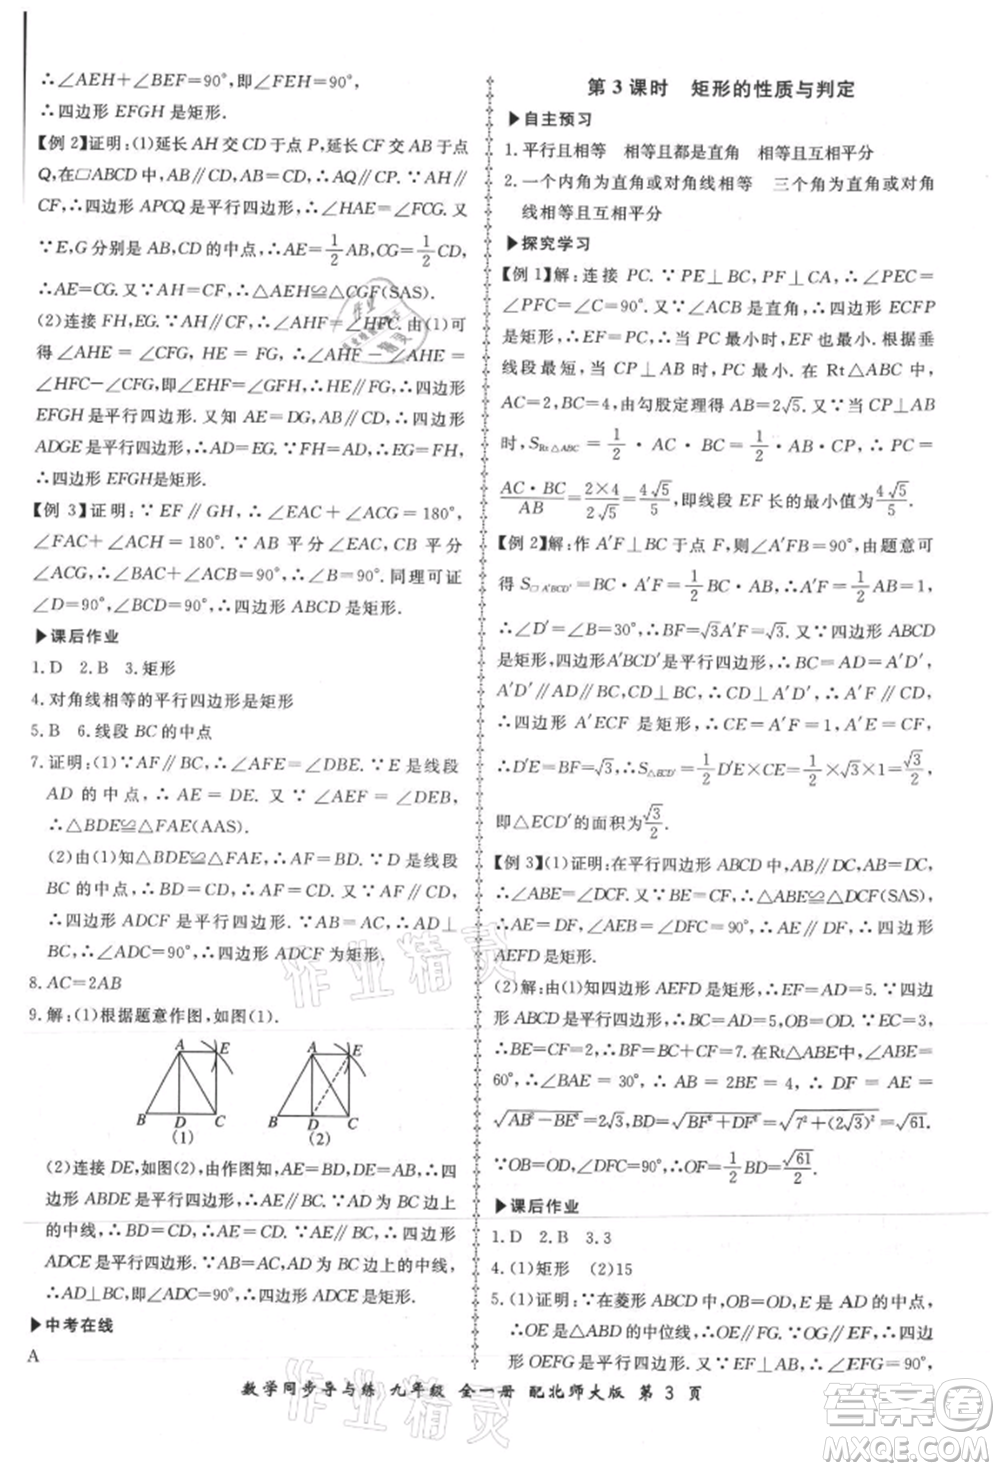 ∴∠AEH+∠BEF=90°,即∠FEH=90°,
∴四边形 EFGH 是矩形.
【例 2】证明:(1)延长 AH 交 CD 于点 P,延长 CF 交 AB 于点
Q,在▱ABCD 中,∴AQ∥PC,∵AP∥QC,
∴四边形 APCQ 是平行四边形,∴∠HAE=∠FCG. 又
∵E,G 分别是 AB,CD 的中点,∴AE=1/2AB,CG=1/2CD,
∴AE=CG. 又∵AH=CF,∴△AEH≌△CGF(SAS).
(2)连接 FH,EG. ∵AH∥CF,∴∠AHF=∠HFC. 由(1)可
得∠AHE=∠CFG, ∴∠AHF-∠AHE=
∠HFC-∠CFG,即∠EHF=∠HFG,∴EH∥GF,∴四边形
EFGH 是平行四边形. 又知 AE=DG,AB∥CD,∴四边形
ADGE 是平行四边形,∴AD=EG. ∵AD=FH,∴EG=FH,
∴四边形 EFGH是矩形.
【例 3】证明:∵EF∥GH,∴∠EAC+∠ACG=180°,
∠FAC+∠ACH=180°. ∵AB 平分∠EAC,BC 平分
∠ACG,∴∠BAC+∠ACB=90°,∴∠B=90°. 同理可证
∠D=90°,∠BCD=90°,∴四边形 ABCD 是矩形.
▶课后作业
1. D 2. B 3. 矩形
4. 对角线相等的平行四边形是矩形
5. B 6. 线段 BC 的中点
7. 证明:(1)∵AF∥BC,∴∠AFE=∠DBE. ∵E 是线段
AD 的中点,∴AE=DE. 又∵∠AEF=∠DEB,
∴△BDE≌△FAE(AAS).
(2)由(1)知△BDE≌△FAE,∴AF=BD. ∵D 是线段
BC 的中点,∴BD=CD,∴AF=CD. 又∵AF∥CD,
∴四边形 ADCF 是平行四边形. ∵AB=AC,∴AD⊥
BC,∴∠ADC=90°,∴四边形 ADCF 是矩形.
8. AC=2AB
9. 解:(1)根据题意作图,如图(1).
A E B D C (1)
A E B D C (2)
(2)连接 DE,如图(2),由作图知,AE=BD,∴四
边形 ABDE 是平行四边形,∴AE∥BC. ∵AD 是 BC
的中线,∴BD=CD,∴AE=CD. ∵AE∥CD,∴四边形
ADCE 是平行四边形. ∵AB=AC,AD 是 BC 的中线,
∴AD⊥BC,即∠ADC=90°,∴四边形 ADCE 是矩形.
▶中考在线
A
第 3 课时 矩形的性质与判定
▶自主预习
1. 平行且相等 相等且都是直角 相等且互相平分
2. 一个内角为直角或对角线相等 三个角为直角或对角
线相等且互相平分
▶探究学习
【例 1】解:连接 PC. ∵PE⊥BC,PF⊥CA,∴∠PEC=
∠PFC=∠C=90°. 又∵∠ACB 是直角,∴四边形 ECFP
是矩形,∴EF=PC,∴PC 最小时,EF 也最小. 根据垂
线段最短,当 CP⊥AB 时,PC 最小. 在 Rt△ABC 中,
AC=2,BC=4,由勾股定理得 AB=2√5. 又∵当 CP⊥AB
时,S_Rt△ABC=1/2·AC·BC=1/2·AB·CP,∴PC=
AC·BC/AB=2×4/2√5=4√5/5,即线段 EF 长的最小值为4√5/5.
【例 2】解:作 A′F⊥BC 于点 F,则∠A′FB=90°,由题意可
得 S_▱A′BCD′=BC·A′F=1/2BC·AB,∴A′F=1/2AB=1,
∴∠D′=∠B=30°,∴BF=√3A′F=√3. 又∵四边形 ABCD
是矩形,∴BC⊥CD,
A′D′∥BC,∴CE⊥A′D′,∴A′F∥CE,
∴四边形 A′ECF 是矩形,∴CE=A′F=1,A′E=CF,
∴D′E=BF=√3,∴S_△ECD′=1/2D′E·CE=1/2×√3×1=√3/2,
即△ECD′的面积为√3/2.
【例 3】(1)证明:在平行四边形 ABCD 中,AB∥DC,AB=DC,
∴∠ABE=∠DCF. ∵BE=CF,∴△ABE≌△DCF(SAS),
∴AE=DF,
AEFD 是矩形.
(2)解:由(1)知四边形 AEFD 是矩形,∴EF=AD=5. ∵四边形
ABCD
BE=CF=2,∴BF=7. 在Rt△ABE 中,∠ABE=
60°,∴∠BAE=30°,∴AB=2BE=4,∴DF=AE=
√AB²-BE²=2√3,∴BD=√BF²+DF²=√7²+(2√3)²=√61.
∵OB=OD,∠DFB=90°,∴OF=1/2BD=√61/2.
▶课后作业
1. D 2. B 3. 3
4. (1)矩形 (2)15
5. (1)证明:∵在菱形 ABCD 中,OB=OD,E 是 AD 的中点,
∴OE 是△ABD 的中位线,∴OE∥FG. ∵OG∥EF,∴四边
形 OEFG 是平行四边形. ∵EF⊥AB,∴∠EFG=90°,
数学同步导与练 九年级 全一册 配北师大版 第 3 页
作业精灵
作业精灵
答案圈
MXQE.COM